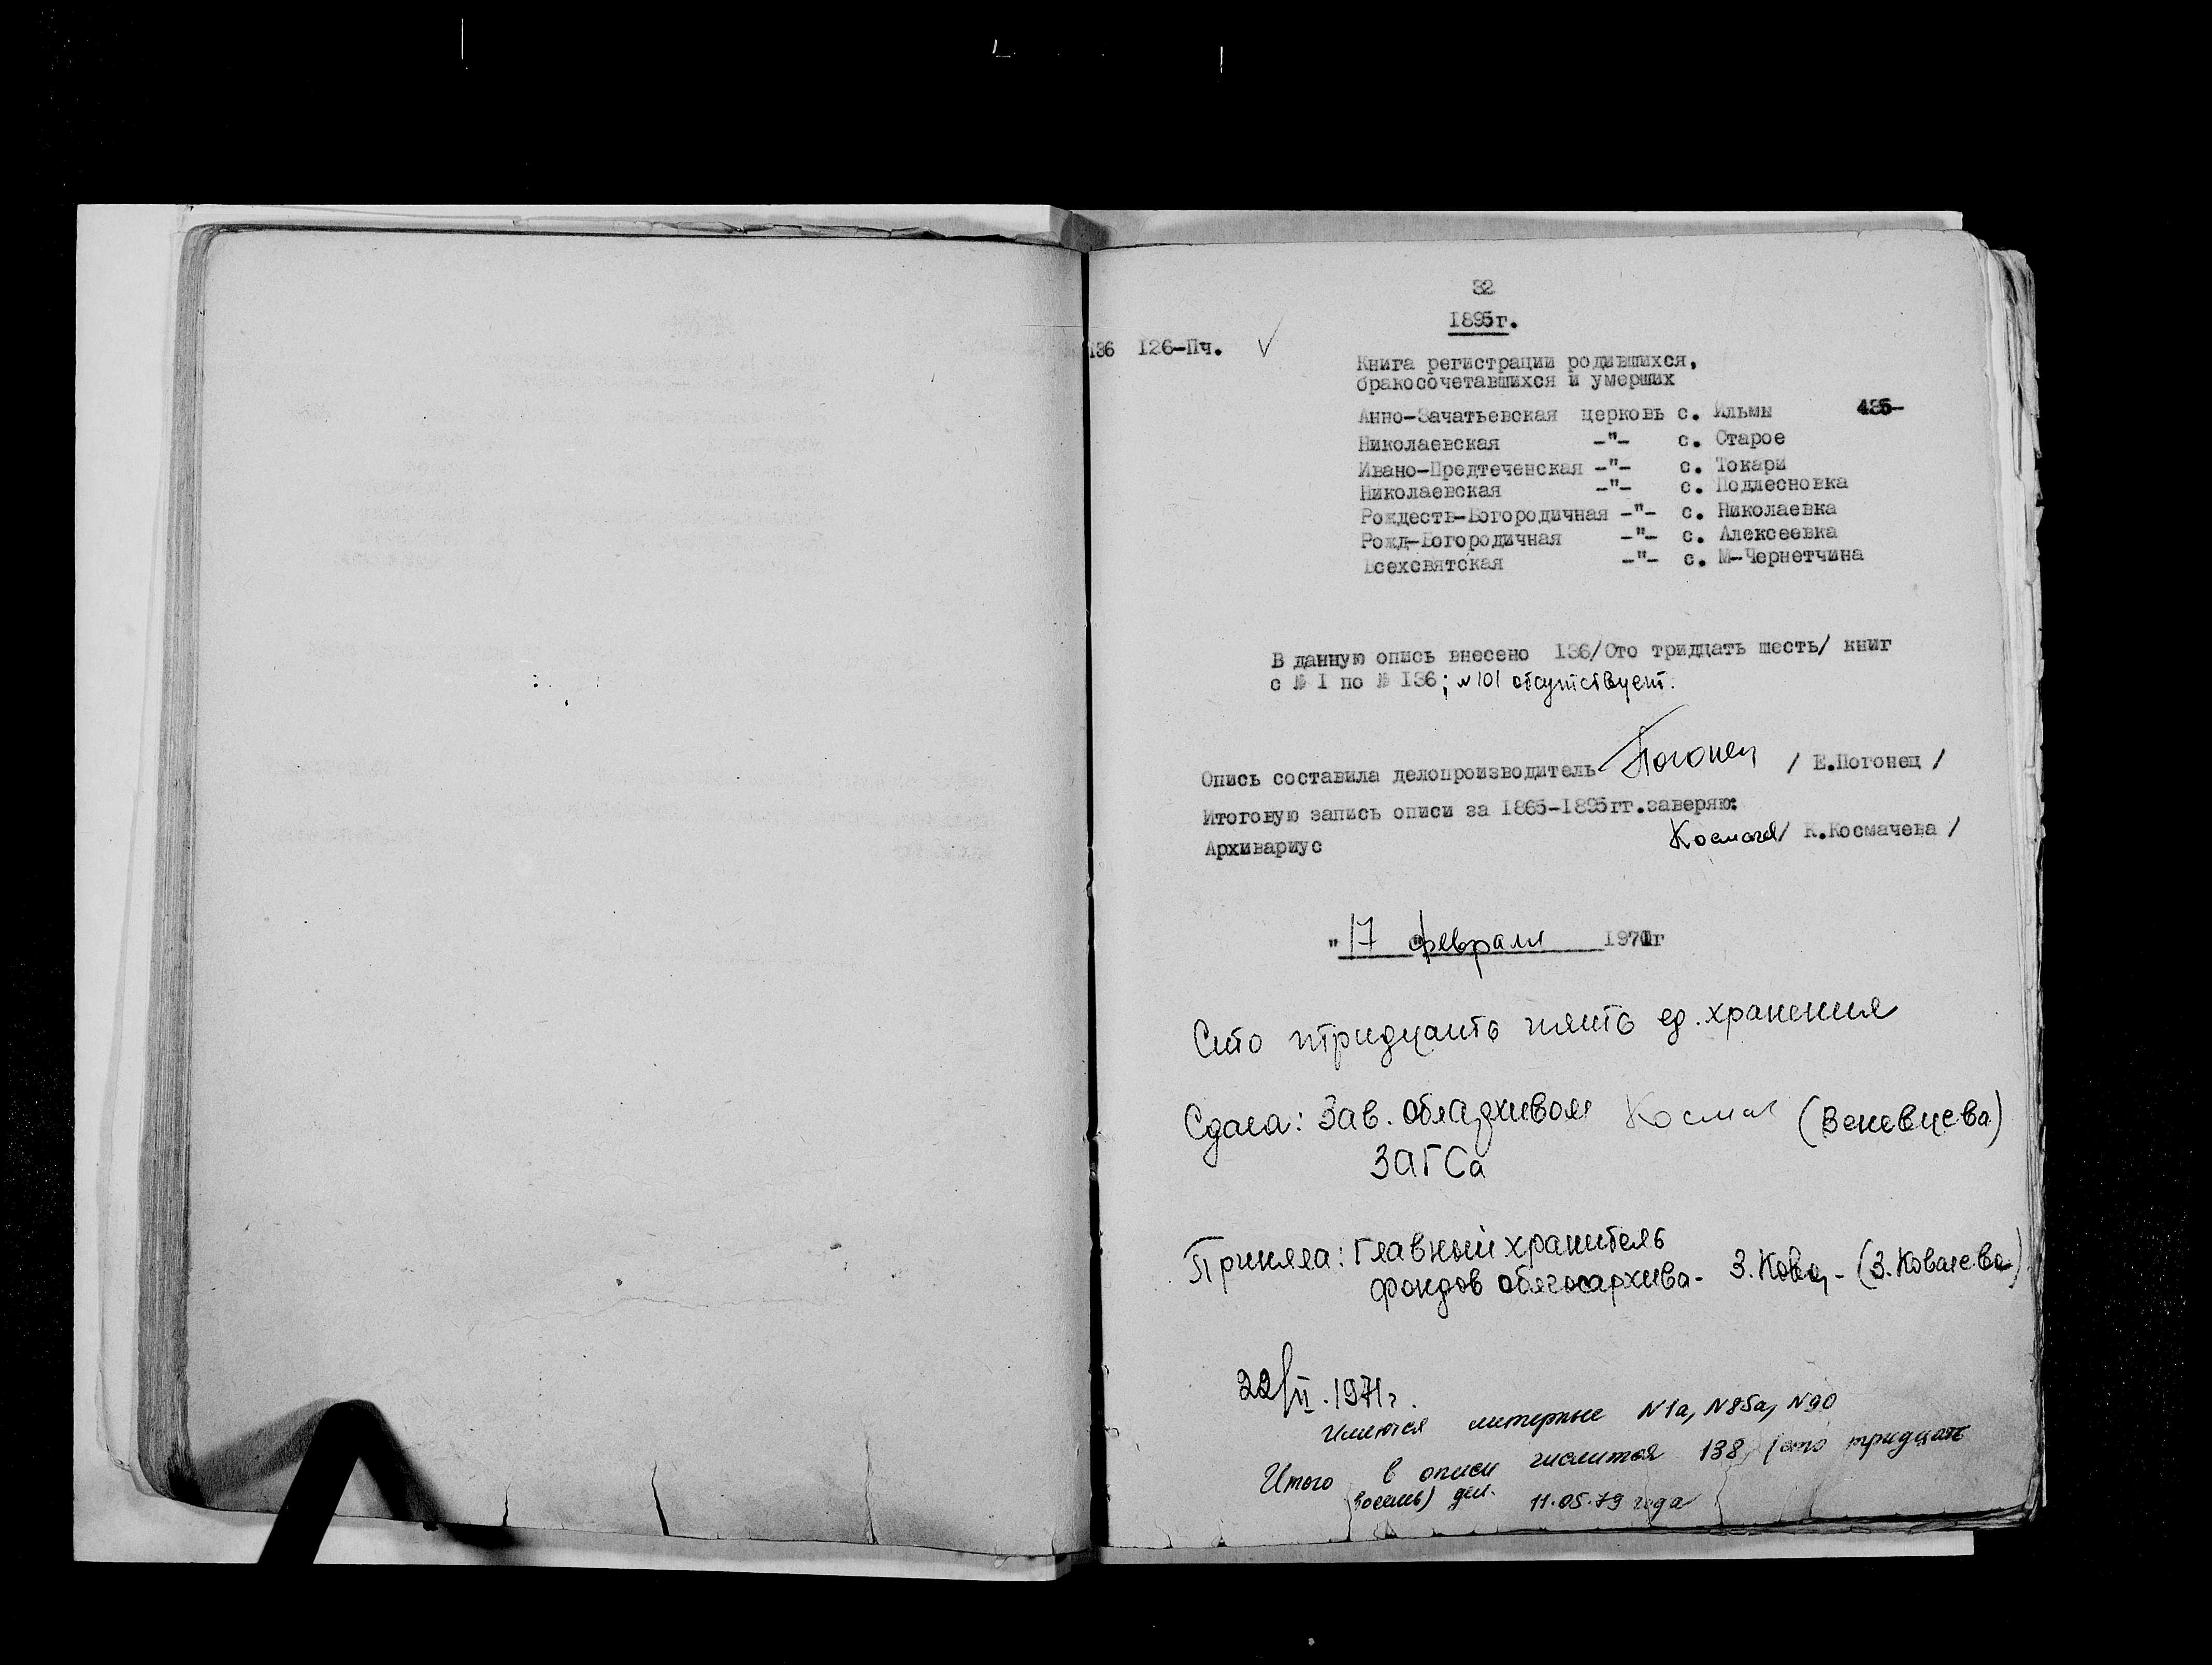 32
1895г.
136 126-Пч. √
Книга регистрации родившихся,
бракосочетавшихся и умерших
Анно-Зачатьевская церковь с. Ильмы 435-
Николаевская -"- с. Старое
Ивано-Предтеченская -"- с. Токари
Николаевская -"- с. Подлесновка
Рождеств-Богородичная -"- с. Николаевка
Рожд-Богородичная -"- с. Алексеевка
Всехсвятская -"- с. М-Чернетчина
В данную опись внесено 136/Сто тридцать шесть/ книг
с № 1 по № 136; №101 отсутствует.
Опись составила делопроизводитель Погонец / Е.Погонец /
Итоговую запись описи за 1865-1895гг.заверяю:
Архивариус Космачев / К.Космачева /
"17 февраля 1971г
Сто тридцать пять ед. хранения
Сдала: Зав. облархивом Космач (Веневцева)
ЗАГСа
Приняла: Главный хранитель
фондов облгосархива - З.Ков - (З.Ковалева)
22/II.1971г.
Имеются литерные №1а, №85а, №90
Итого в описи числится 138 (сто тридцать
восемь) дел. 11.05.79 года